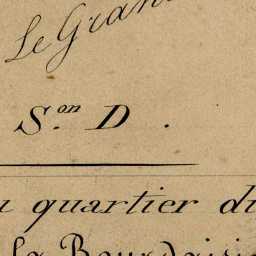 Le Grand
S.on D .
u quartier du
la Bourdaisi